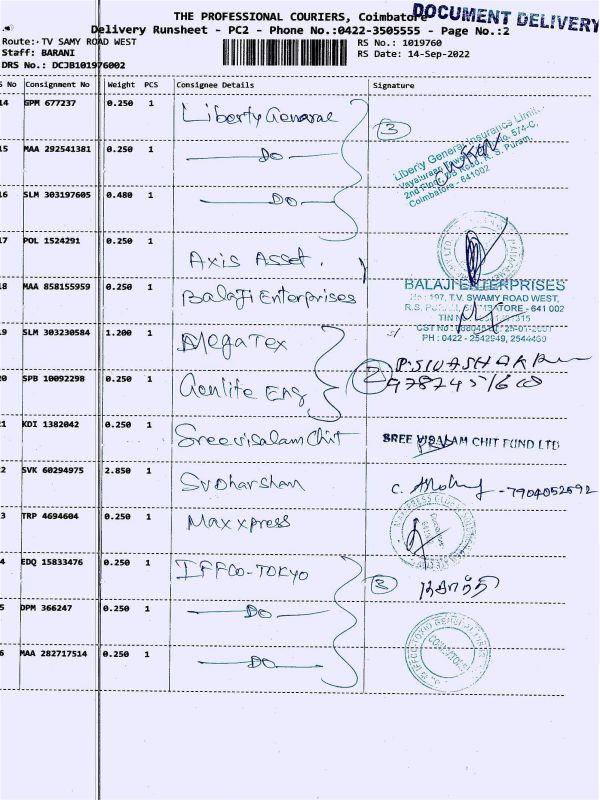 THE PROFESSIONAL COURIERS, Coimbatore
DOCUMENT DELIVERY
Delivery Runsheet - PC2 - Phone No.:0422-3505555 - Page No.:2
Route: TV SAMY ROAD WEST
RS No.: 1019760
Staff: BARANI
RS Date: 14-Sep-2022
DRS No.: DCJB101976002
S No Consignment No Weight PCS Consignee Details Signature
14 GPM 677237 0.250 1 Liberty General
3
Liberty General Insurance Limit
2nd Floor, R. S. Puram,
Coimbatore - 641002
15 MAA 292541381 0.250 1 DO
16 SLM 303197605 0.480 1 DO
17 POL 1524291 0.250 1 Axis Asset.
18 MAA 858155959 0.250 1 Balaji Enterprises
BALAJI ENTERPRISES
No : 197, T.V. SWAMY ROAD WEST,
COIMBATORE - 641 002
PH : 0422 - 2542949, 2544469
19 SLM 303230584 1.200 1 MegaTex
P. SIVASHAKR
2
20 SPB 10092298 0.250 1 Aenlite Eng
21 KDI 1382042 0.250 1 Sreevisalam Chit
SREE VISALAM CHIT FUND LTD
22 SVK 60294975 2.850 1 Sudharshan
C. - 7904052592
23 TRP 4694604 0.250 1 Maxxpress
24 EDQ 15833476 0.250 1 IFFCO-TOKYO
3
25 DPM 366247 0.250 1 DO
26 MAA 282717514 0.250 1 DO